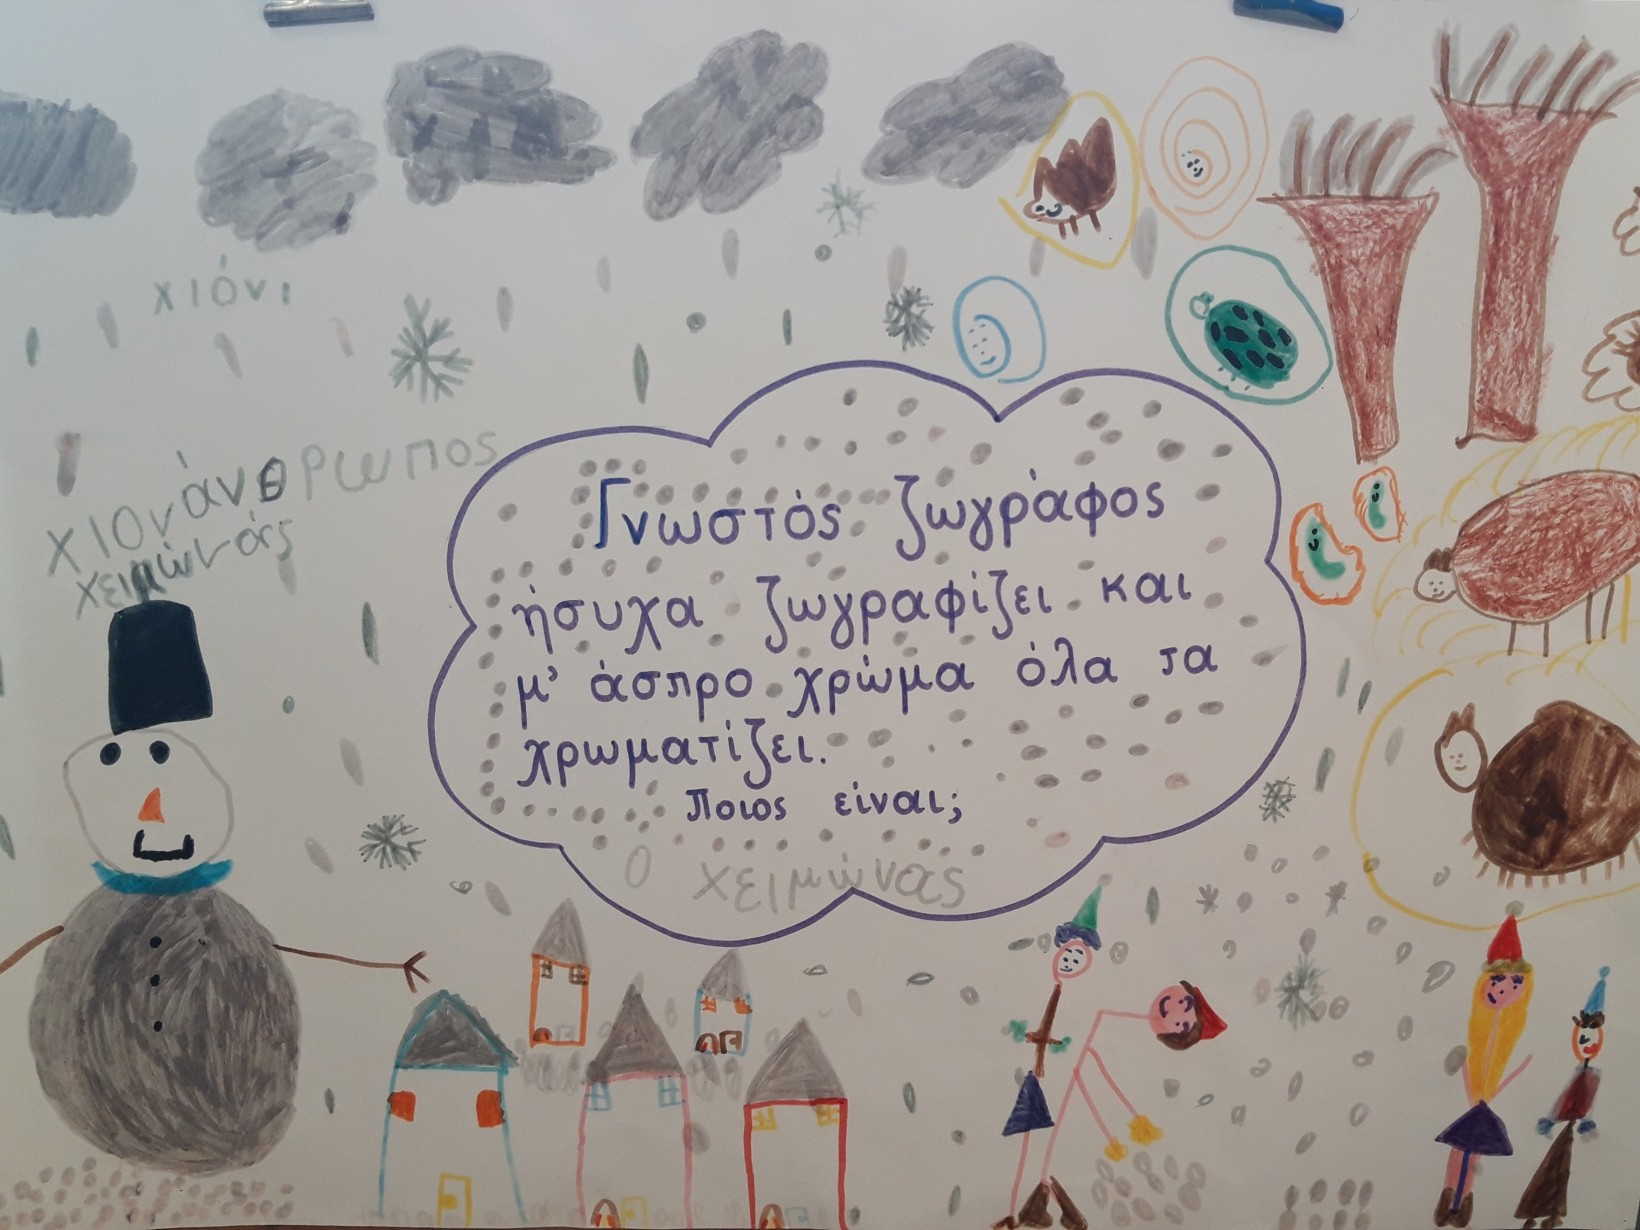 χιόνι
χιονάνθρωπος
χειμώνάς
Γνωστός ζωγράφος
ήσυχα ζωγραφίζει και
μ' άσπρο χρώμα όλα τα
χρωματίζει.
Ποιος είναι;
Ο χειμώνας